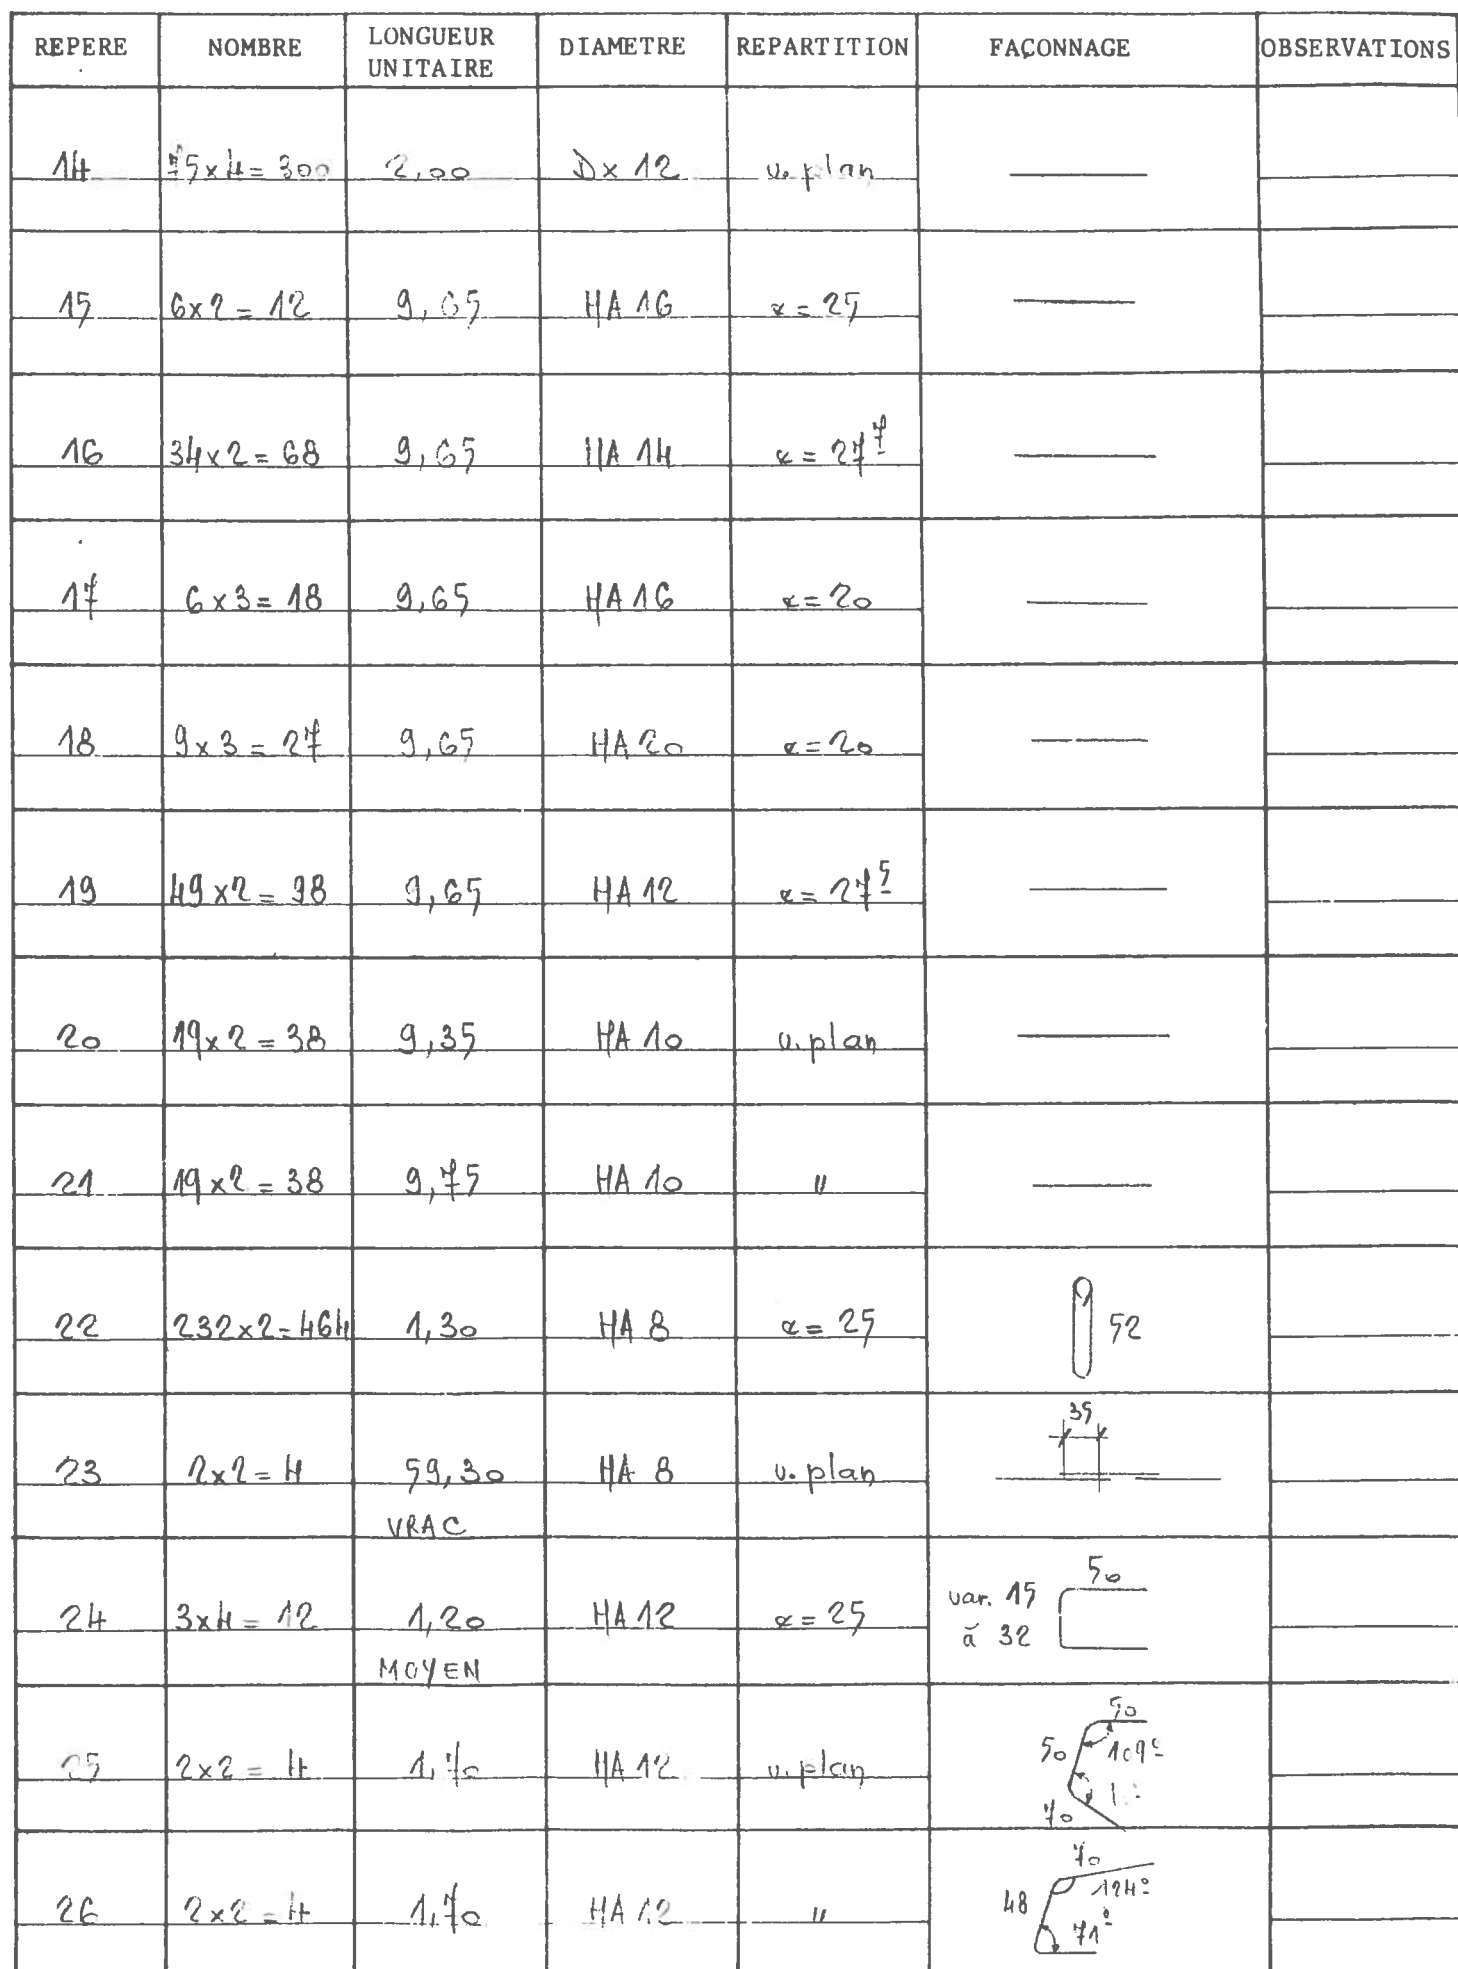 REPERE NOMBRE LONGUEUR UNITAIRE DIAMETRE REPARTITION FAÇONNAGE OBSERVATIONS
14 75x4=300 2,00 Dx 12 v. plan
15 6x2=12 9,65 HA 16 α=25
16 34x2=68 9,65 HA 14 α=27⁷
17 6x3=18 9,65 HA 16 α=20
18 9x3=27 9,65 HA 20 α=20
19 49x2=98 9,65 HA 12 α=27⁵
20 19x2=38 9,35 HA 10 v. plan
21 19x2=38 9,75 HA 10 "
22 232x2=464 1,30 HA 8 α=25 52
23 2x2=4 59,30 HA 8 v. plan 35
VRAC
24 3x4=12 1,20 HA 12 α=25 var. 15 à 32 50
MOYEN
25 2x2=4 1,70 HA 12 v. plan 50 50 109° 70
26 2x2=4 1,70 HA 12 " 70 48 124° 71°